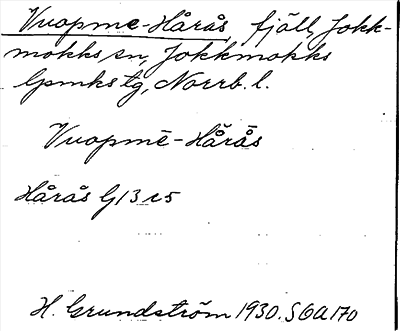 Vuopme-Hårås, fjäll, Jokk-
mokks sn, Jokkmokks
lpmks tg, Norrb. l.
Vuopmē-Hårås
Hårås G13 c5
H. Grundström 1930. S6A170